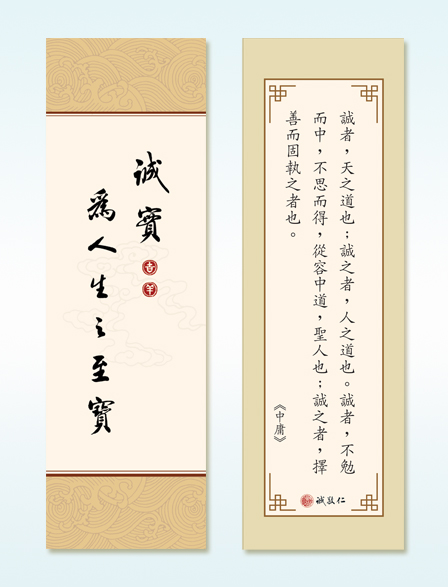 誠實
為人生之至寶
吉
羊
誠者，天之道也；誠之者，人之道也。誠者，不勉
而中，不思而得，從容中道，聖人也；誠之者，擇
善而固執之者也。
《中庸》
誠敬仁